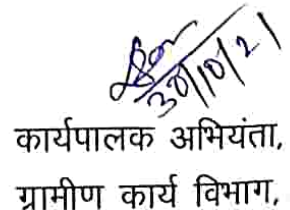 30/10/21
कार्यपालक अभियंता,
ग्रामीण कार्य विभाग,